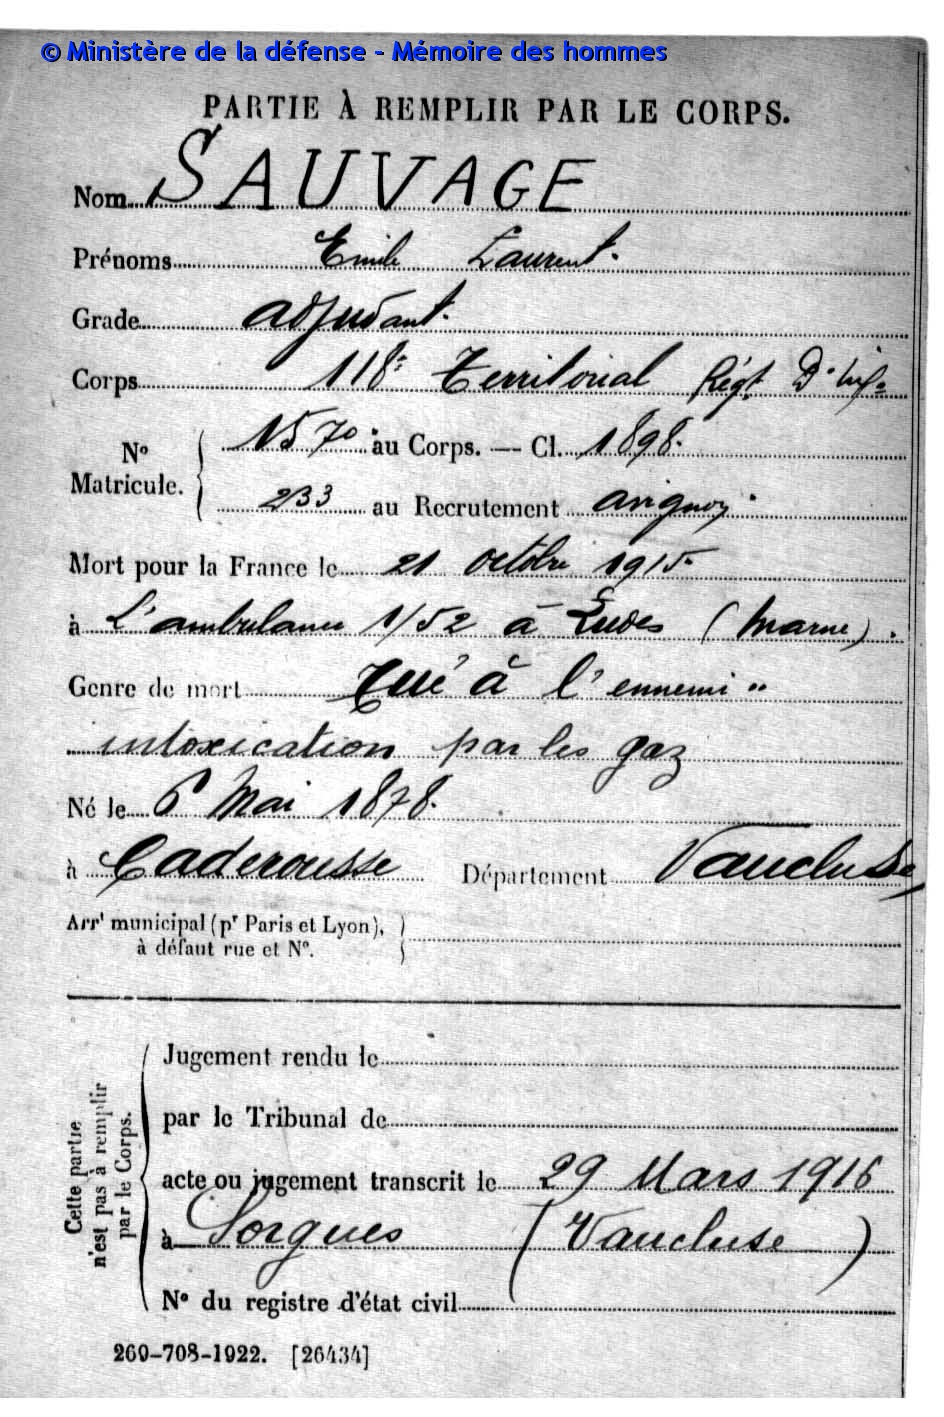 © Ministère de la défense - Mémoire des hommes
PARTIE À REMPLIR PAR LE CORPS.
Nom SAUVAGE
Prénoms Emile Laurent.
Grade adjudant.
Corps 118e Territorial Régt D'Infie
No Matricule. 1570 au Corps. — Cl. 1898.
233 au Recrutement avignon
Mort pour la France le 21 octobre 1915
à L'ambulance 1/52 à Ludes (Marne).
Genre de mort Tué à l'ennemi "
intoxication par les gaz
Né le 6 Mai 1878.
à Caderousse Département Vaucluse
Arrt municipal (pr Paris et Lyon),
à défaut rue et No.
Cette partie
n'est pas à remplir
par le Corps.
Jugement rendu le
par le Tribunal de
acte ou jugement transcrit le 29 Mars 1916
à Sorgues (Vaucluse)
No du registre d'état civil
260-708-1922. [26434]